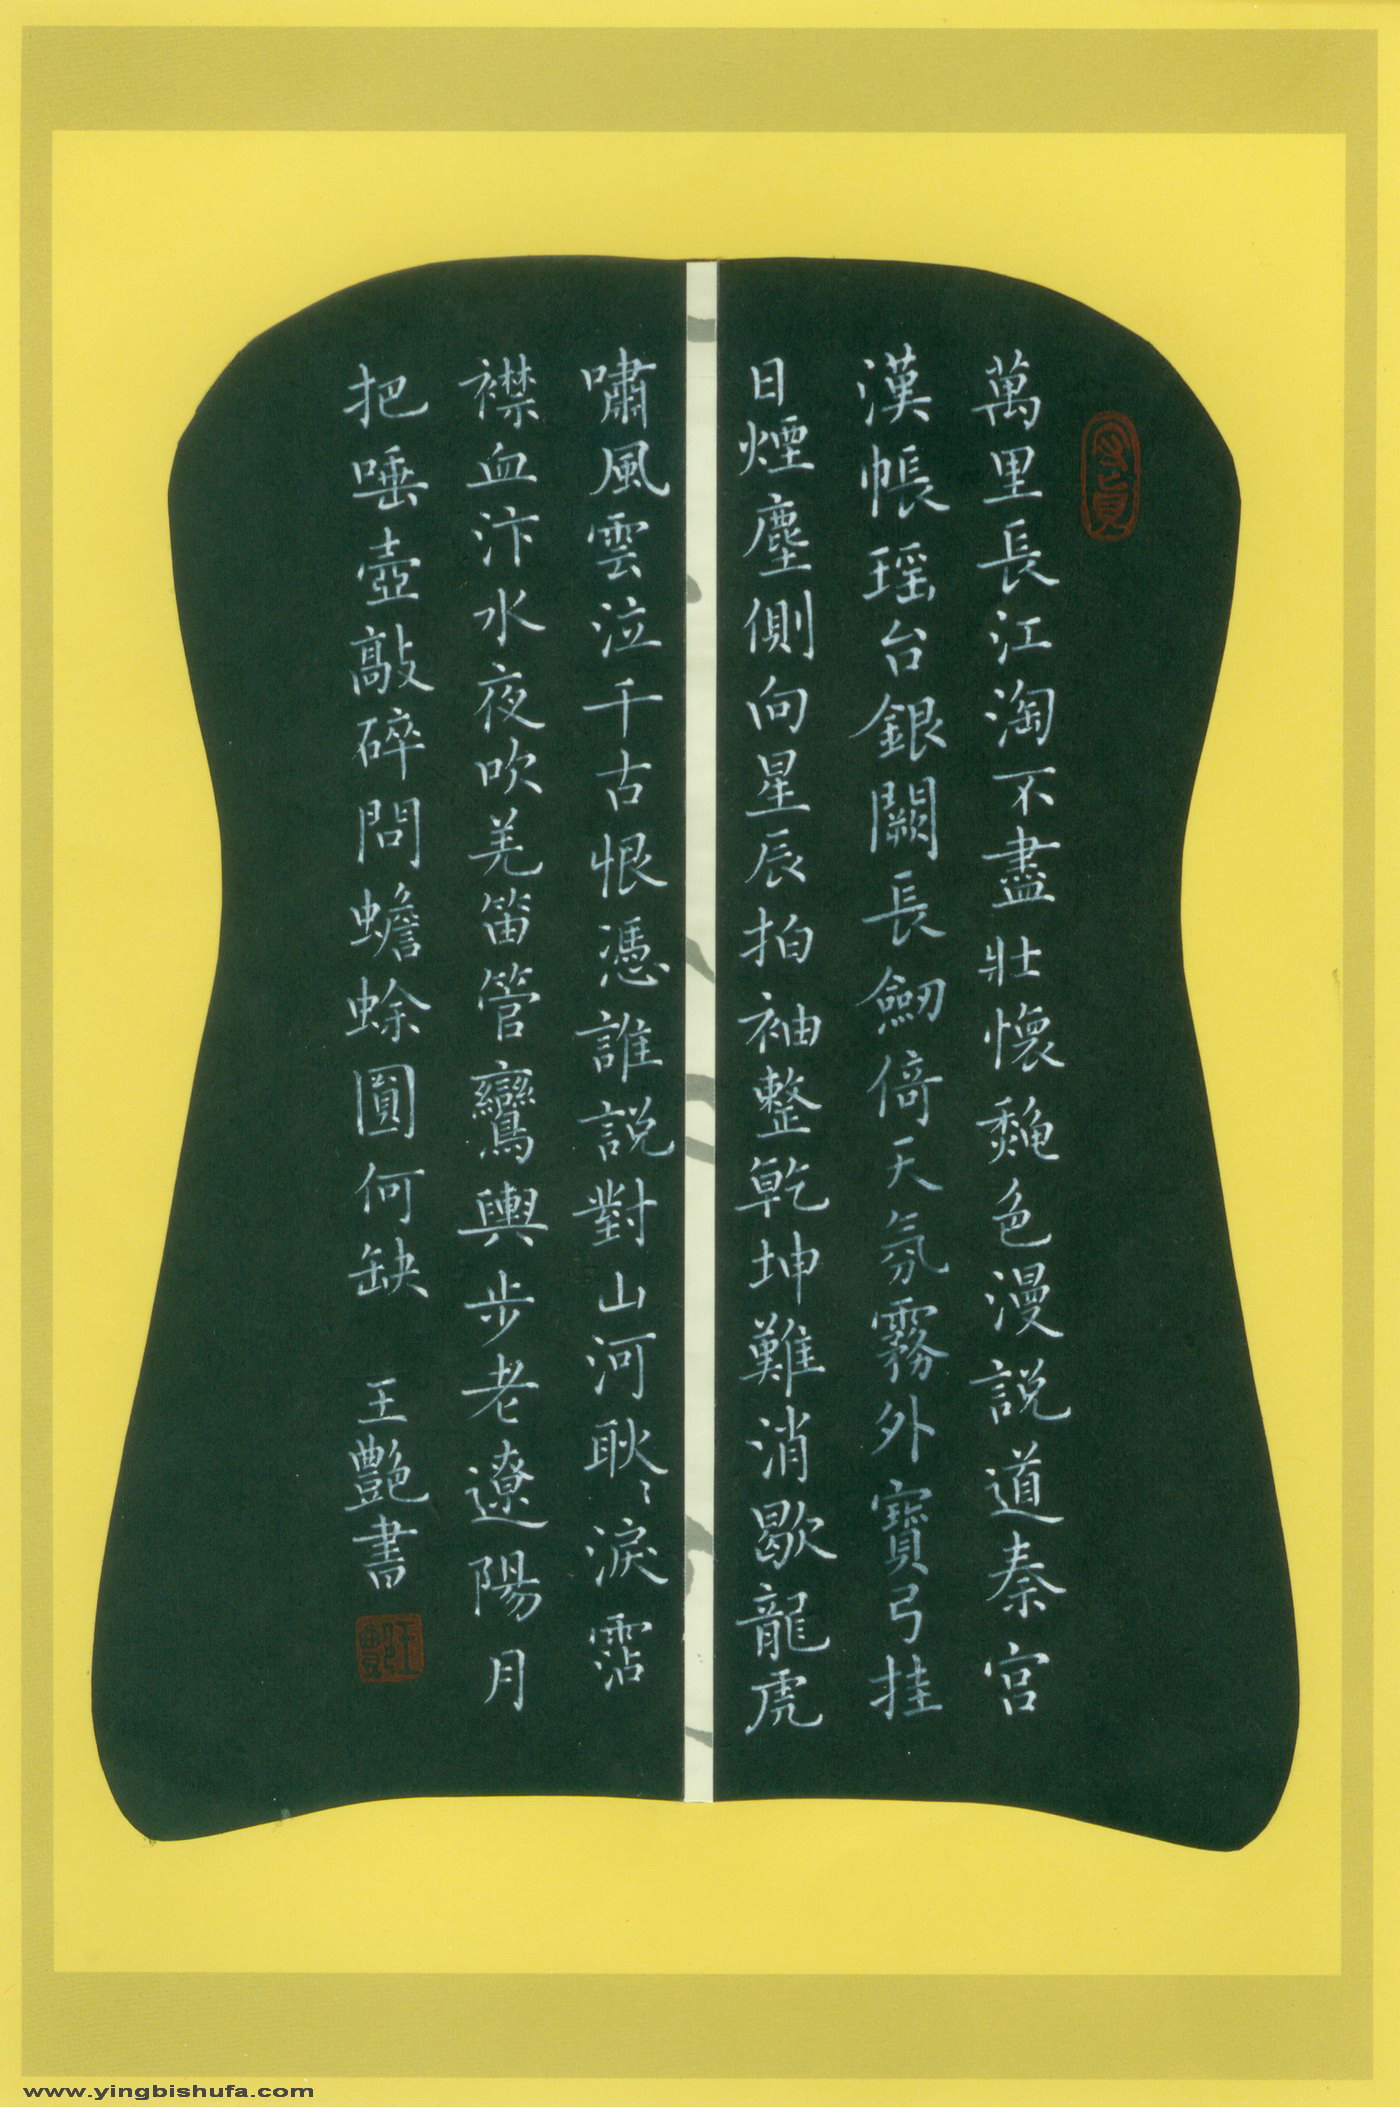 萬里長江淘不盡壯懷秋色漫説道秦宮
漢帳瑶台銀闕長劒倚天氛霧外寶弓挂
日煙塵側向星辰拍袖整乾坤難消歇龍虎
嘯風雲泣千古恨憑誰説對山河耿〻淚霑
襟血汴水夜吹羌笛管鸞輿步老遼陽月
把唾壺敲碎問蟾蜍圓何缺
王艷書
www.yingbishufa.com